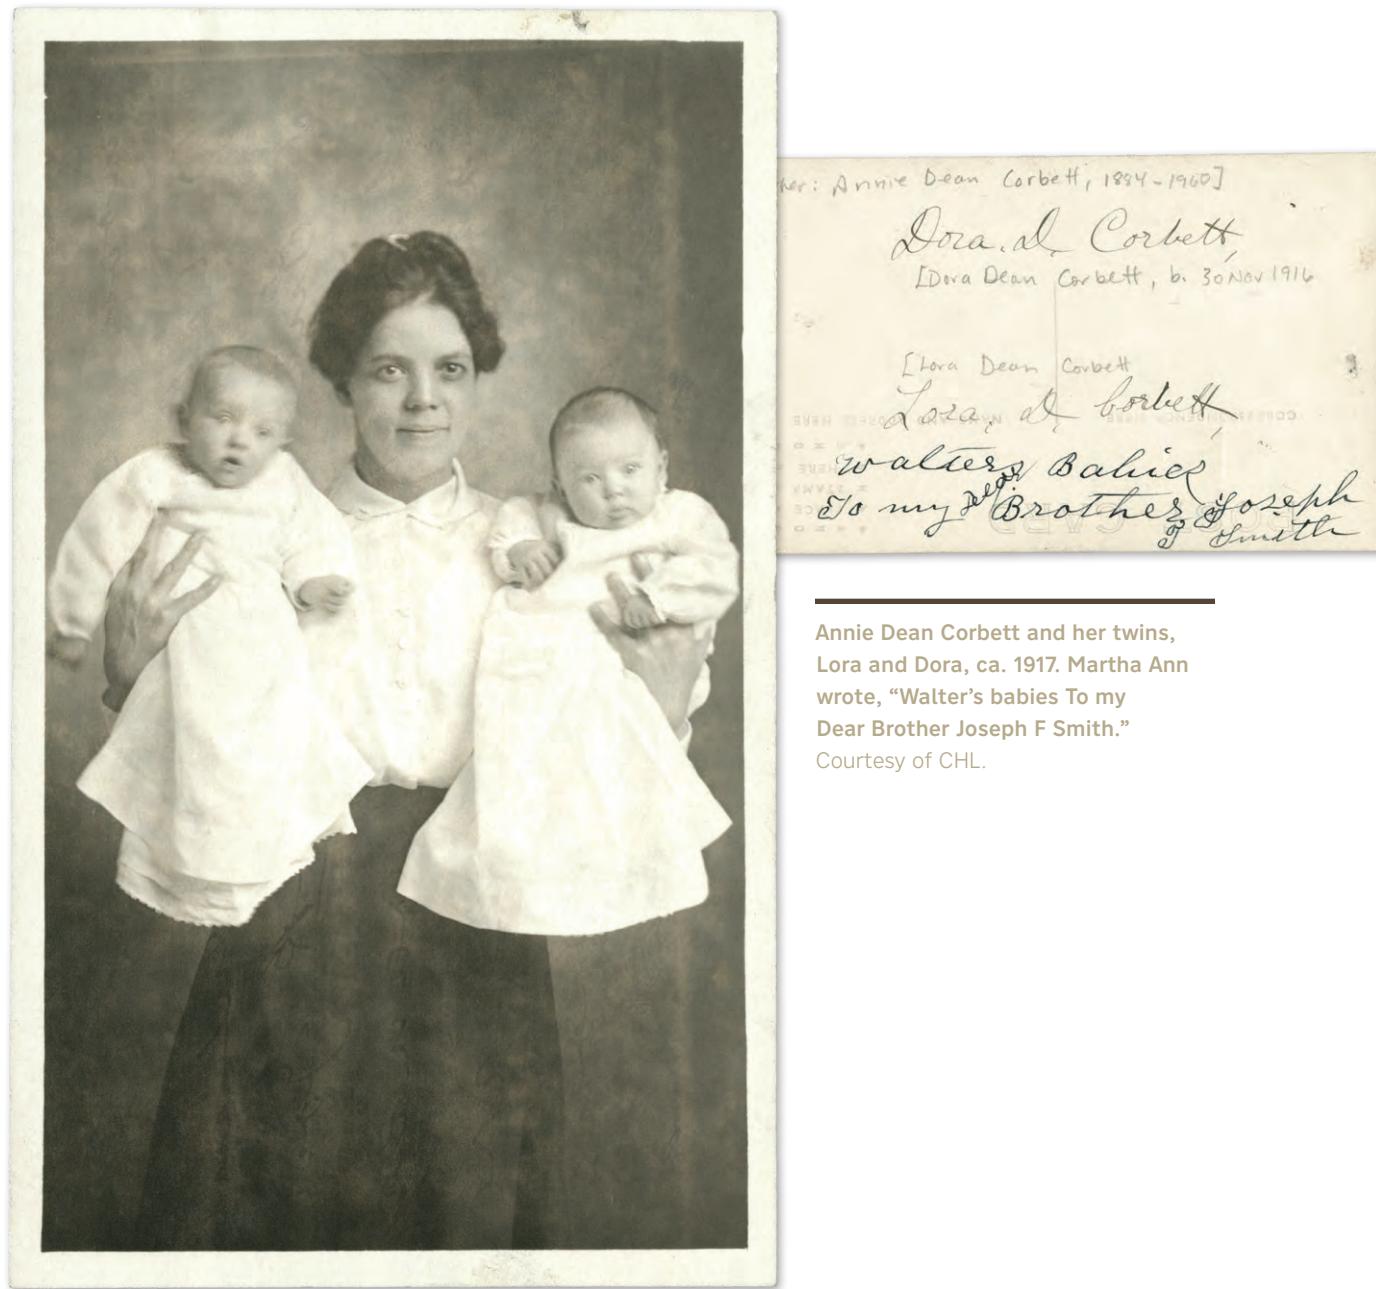 her: Annie Dean Corbett, 1884-1960]
Dora. D. Corbett,
[Dora Dean Corbett, b. 30 Nov 1916
[Lora Dean Corbett
Lora. D. Corbett,
walters Babies
To my Dear Brother Joseph
F Smith
CORRESPONDENCE HERE
NAME AND ADDRESS HERE
POST CARD
Annie Dean Corbett and her twins,
Lora and Dora, ca. 1917. Martha Ann
wrote, “Walter’s babies To my
Dear Brother Joseph F Smith.”
Courtesy of CHL.